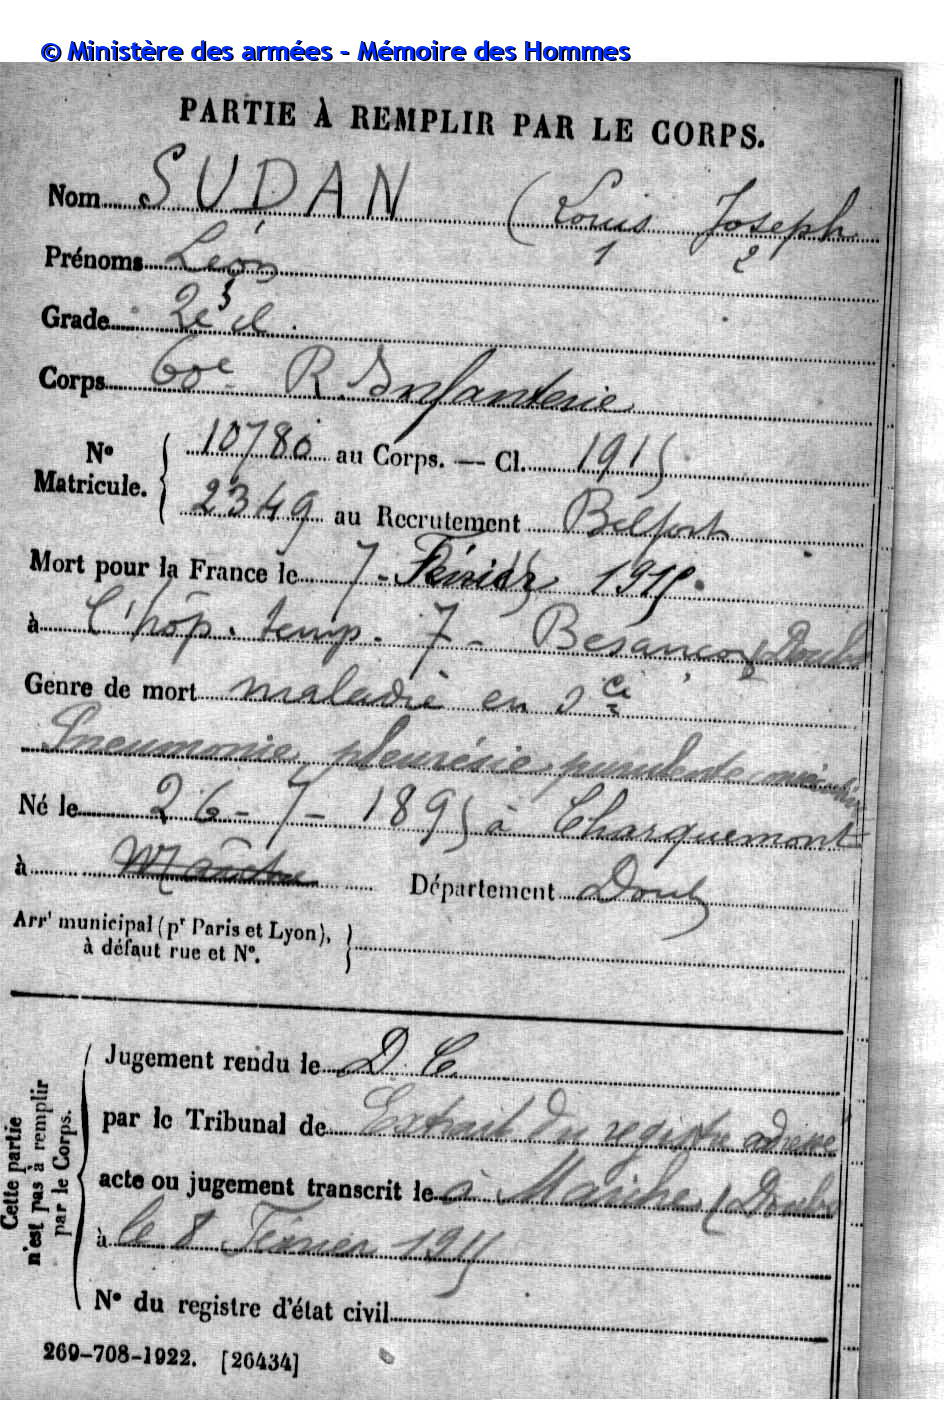 © Ministère des armées - Mémoire des Hommes
PARTIE À REMPLIR PAR LE CORPS.
Nom SUDAN (Louis Joseph
1 2
Prénoms Léon
3
Grade 2e cl.
Corps 60e R. Infanterie
N° Matricule. { 10780 au Corps. — Cl. 1915
2349 au Recrutement Belfort
Mort pour la France le 7 - Février 1915.
à l'hôp. temp. 7 - Besançon, Doubs
Genre de mort maladie en sce
Pneumonie, pleurésie purulente
Né le 26 - 7 - 1895 à Charquemont
à Département Doubs
Arrt municipal (pr Paris et Lyon), }
à défaut rue et N°.
Cette partie n'est pas à remplir par le Corps.
Jugement rendu le D. C.
par le Tribunal de Extrait du registre adressé
acte ou jugement transcrit le à Maiche (Doubs
à le 8 Février 1915
N° du registre d'état civil
269-708-1922. [26434]